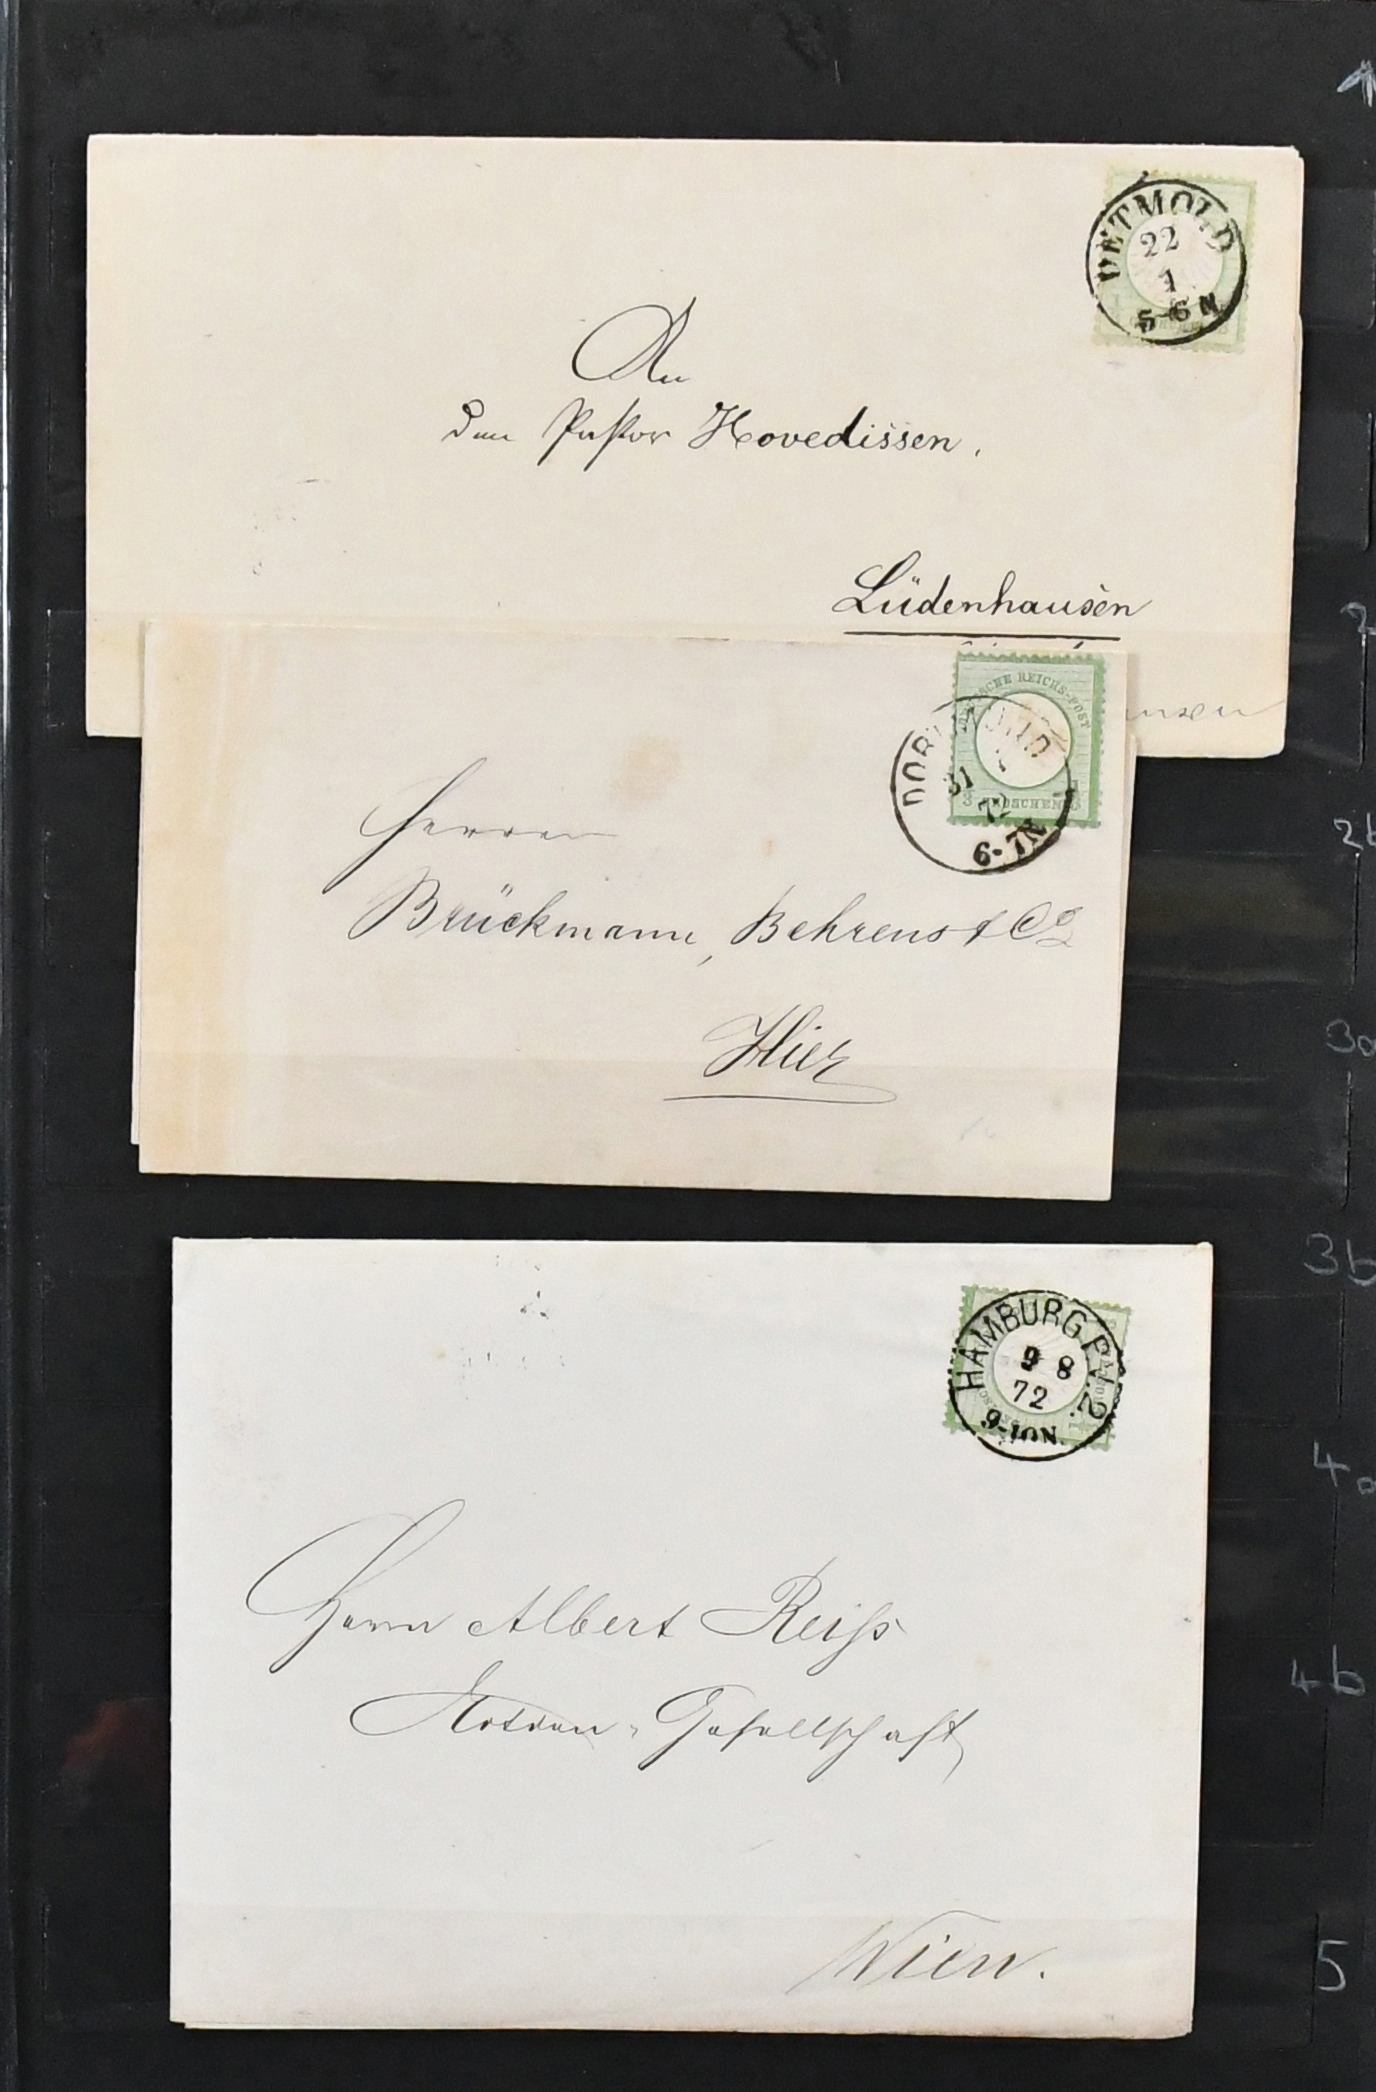 DETMOLD
22
1
5-6 N
An
den Pastor Hovedissen.
Lüdenhausen
DEUTSCHE REICHS-POST
GROSCHEN
DORTMUND
31
72
6-7N
Herren
Brückmann, Behrens & Co
Hier
HAMBURG P.A. 2.
9 8
72
9-10N.
Herrn Albert Reiss
Actien-Gesellschaft
Wien.
2
2b
3a
3b
4a
4b
5